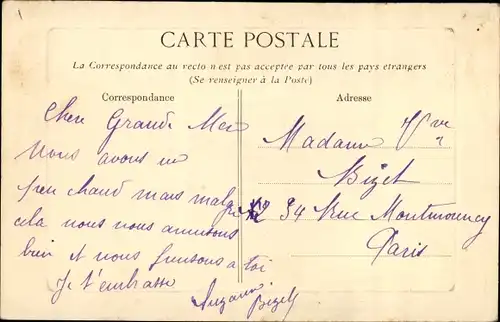 CARTE POSTALE
La Correspondance au recto n'est pas acceptée par tous les pays étrangers
(Se renseigner à la Poste)
Correspondance
Adresse
Chere Grande Mer
nous avons un
peu chaud mais malgre
cela nous nous amusons
bien et nous pensons a toi
Je t'embrasse
Suzanne
Bizet
Madame Vve
Bizet
34 Rue Montmorency
Paris